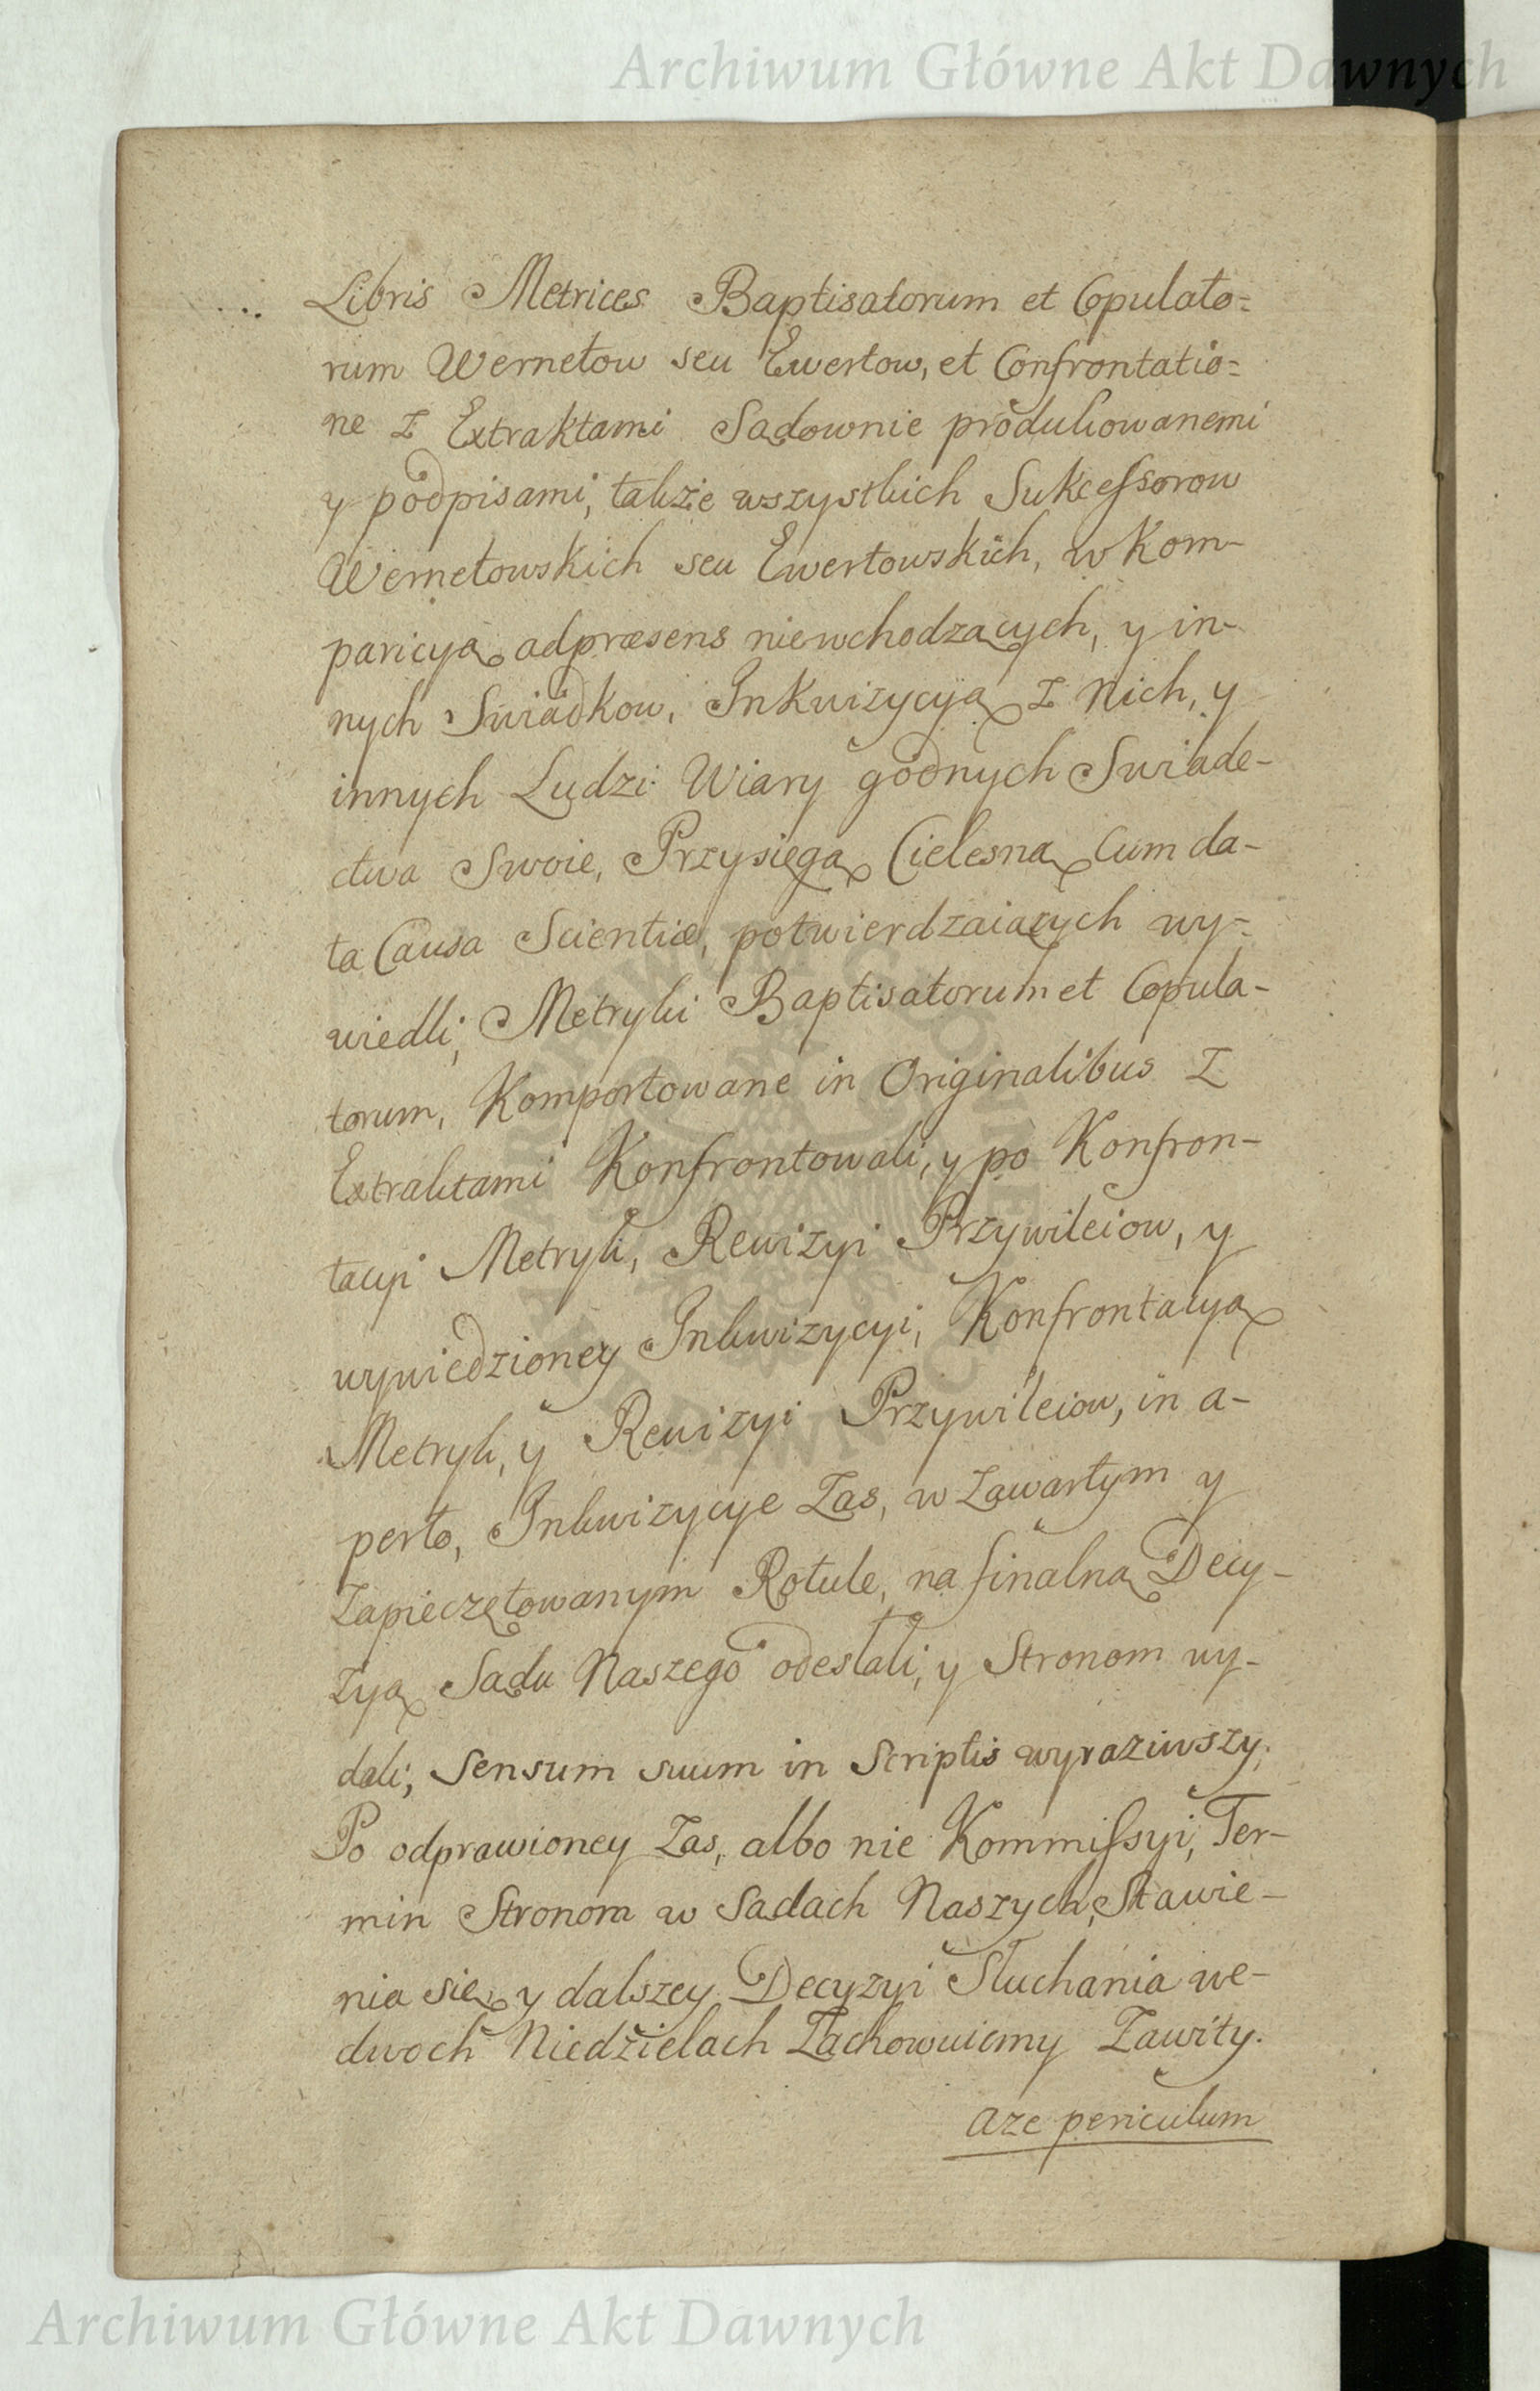 Archiwum Główne Akt Dawnych
Libris Metrices Baptisatorum et Copulato=
rum Wernetow seu Ewertow, et Confrontatio=
ne z Extraktami Sądownie produkowanemi
y podpisami, takze wszystkich Sukcessorow
Wernetowskich seu Ewertowskich, w Kom-
paricyą adpræsens niewchodzących, y in-
nych Swiadkow, Inkwizycyą z Nich, y
innych Ludzi Wiary godnych Swiade-
ctwa Swoie, Przysięgą Cielesną Cum da-
ta Causa Scientiæ, potwierdzaiących wy-
wiedli, Metryki Baptisatorum et Copula-
torum, Komportowane in Originalibus z
Extraktami Konfrontowali, y po Konfron-
tacyi Metryk, Rewizyi Przywileiow, y
wywiedzioney Inkwizycyi, Konfrontacyą
Metryk, y Rewizyi Przywileiow, in a-
perto, Inkwizycye Zas, w Zawartym y
Zapieczętowanym Rotule, na finalną Decy-
zyą Sądu Naszego odeslali, y Stronom wy-
dali, Sensum suum in Scriptis wyraziwszy.
Po odprawioney Zas, albo nie Kommissyi, Ter-
min Stronom w Sądach Naszych, Stawie-
nia się y dalszey Decyzyi Słuchania we-
dwoch Niedzielach Zachowuiemy Zawity.
aze periculum
Archiwum Główne Akt Dawnych